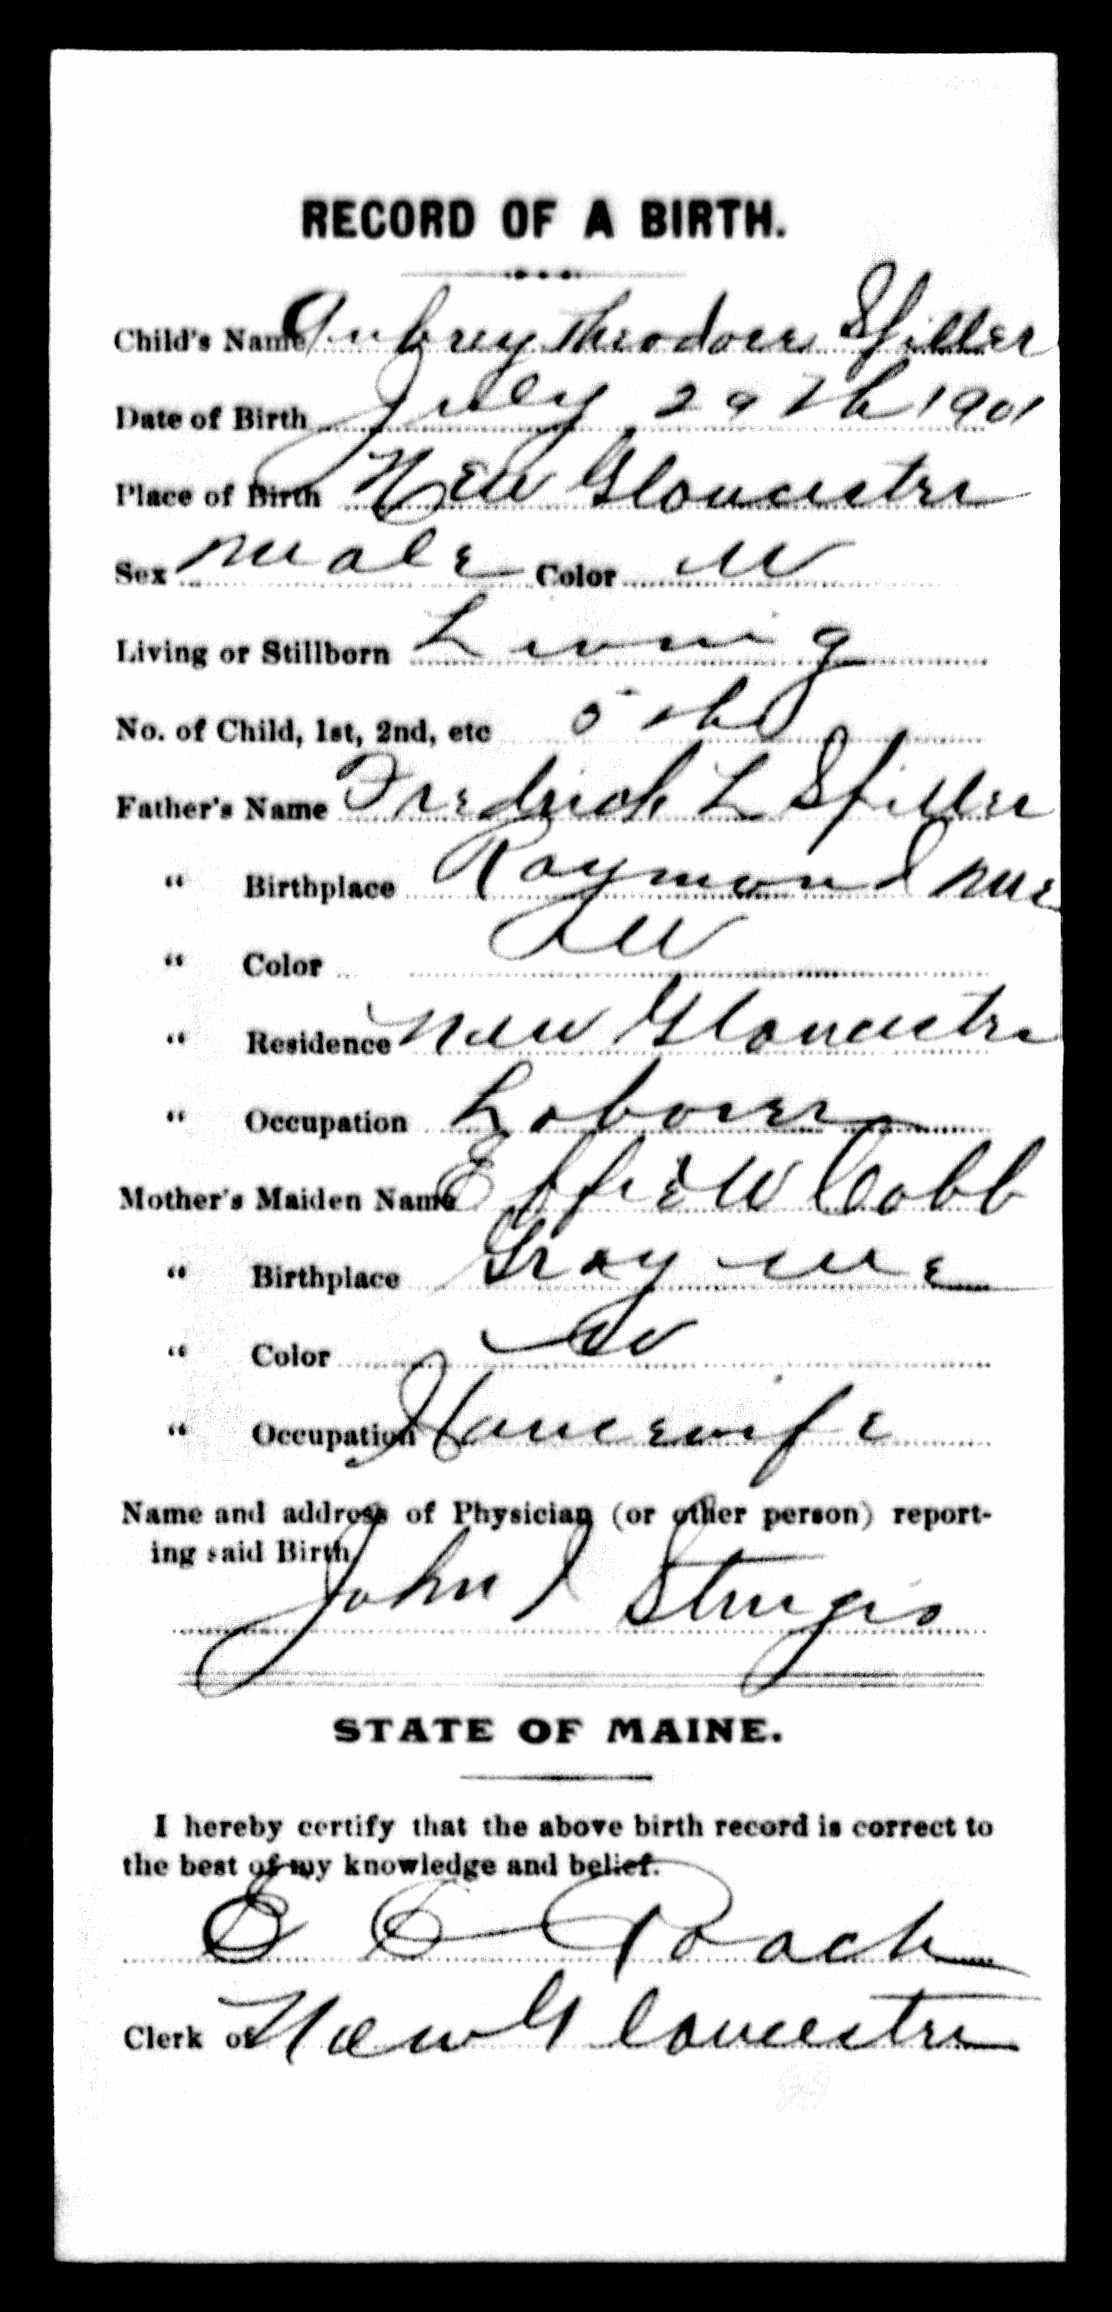 RECORD OF A BIRTH.
Child's Name Aubrey Theodore Spiller
Date of Birth July 29th 1901
Place of Birth New Gloucester
Sex Male Color W
Living or Stillborn Living
No. of Child, 1st, 2nd, etc 5th
Father's Name Fredrick L Spiller
" Birthplace Raymond Me
" Color W
" Residence New Gloucester
" Occupation Laborer
Mother's Maiden Name Effie W Cobb
" Birthplace Gray Me
" Color W
" Occupation Housewife
Name and address of Physician (or other person) report-
ing said Birth,
John I Sturgis
STATE OF MAINE.
I hereby certify that the above birth record is correct to
the best of my knowledge and belief.
E C Roach
Clerk of New Gloucester